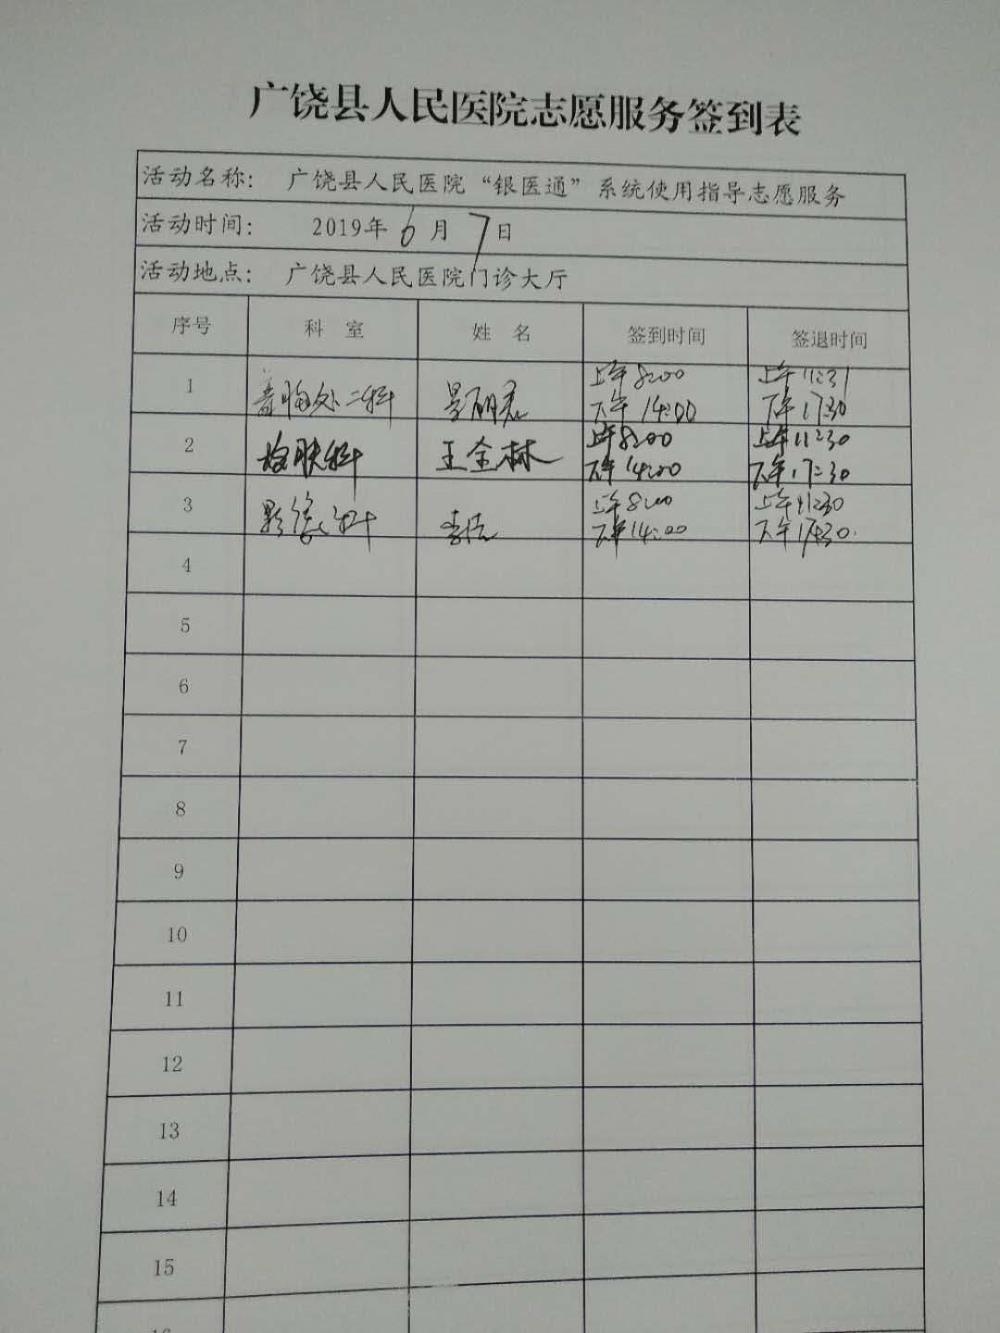 广饶县人民医院志愿服务签到表
活动名称: 广饶县人民医院“银医通”系统使用指导志愿服务
活动时间: 2019年6月7日
活动地点: 广饶县人民医院门诊大厅
序号 科室 姓名 签到时间 签退时间
1 上午8:00 上午11:31
下午14:00 下午17:30
2 皮肤科 王全林 上午8:00 上午11:30
下午14:00 下午17:30
3 影像科 李洁 上午8:00 上午11:30
下午14:00 下午17:30
4
5
6
7
8
9
10
11
12
13
14
15